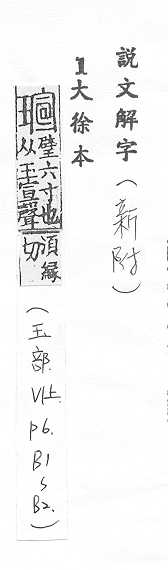 說文解字(新附)
1大徐本
瑄 璧六寸也
从玉宣聲 須緣切
(玉部. V1上. P6. B1~B2.)